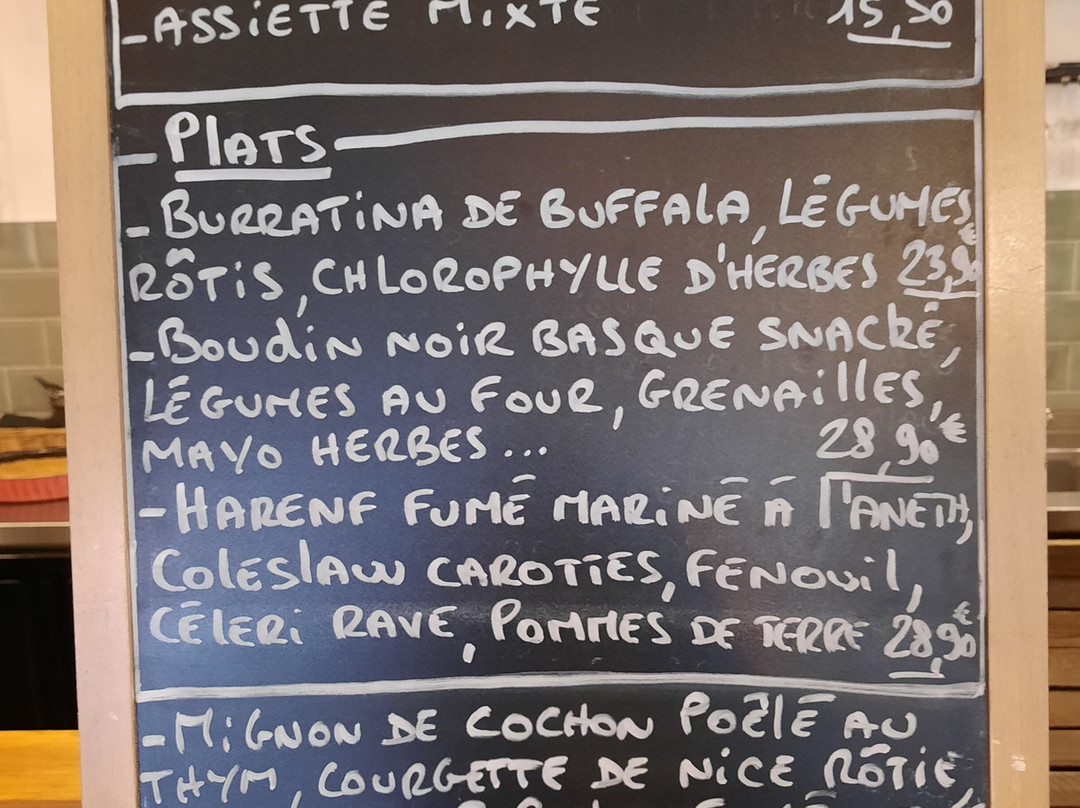 - ASSIETTE MIXTE 15,50
- PLATS
- BURRATINA DE BUFFALA, LÉGUMES
RÔTIS, CHLOROPHYLLE D'HERBES 23,90€
- BOUDIN NOIR BASQUE SNACKÉ,
LÉGUMES AU FOUR, GRENAILLES,
MAYO HERBES... 28,90€
- HARENF FUMÉ MARINÉ À L'ANETH,
COLESLAW CAROTTES, FENOUIL,
CÉLERI RAVE, POMMES DE TERRE 28,90€
- MIGNON DE COCHON POÊLÉ AU
THYM, COURGETTE DE NICE RÔTIE